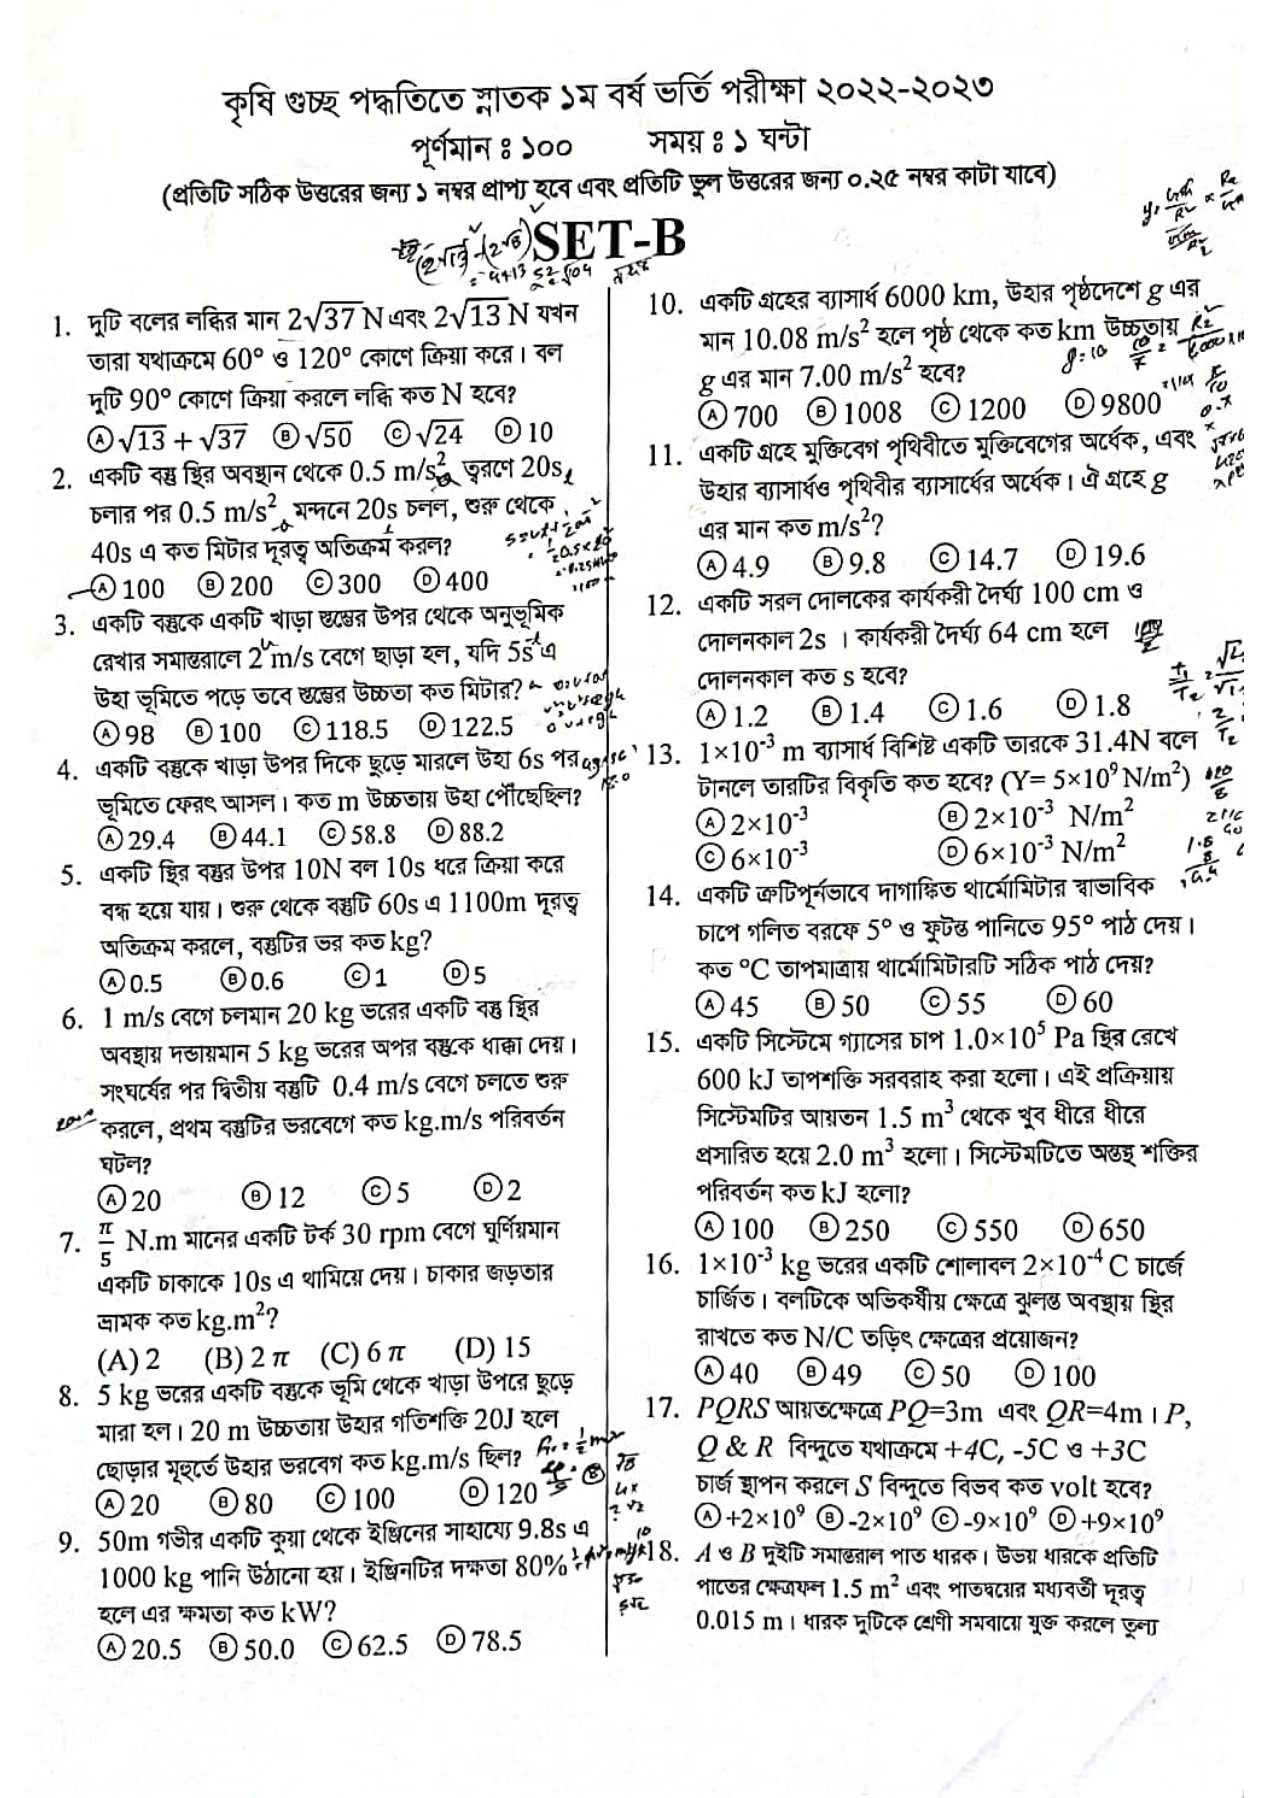 কৃষি গুচ্ছ পদ্ধতিতে স্নাতক ১ম বর্ষ ভর্তি পরীক্ষা ২০২২-২০২৩
পূর্ণমান ঃ ১০০ সময় ঃ ১ ঘন্টা
(প্রতিটি সঠিক উত্তরের জন্য ১ নম্বর প্রাপ্য হবে এবং প্রতিটি ভুল উত্তরের জন্য ০.২৫ নম্বর কাটা যাবে)
SET-B
1. দুটি বলের লব্ধির মান 2√37 N এবং 2√13 N যখন
তারা যথাক্রমে 60° ও 120° কোণে ক্রিয়া করে। বল
দুটি 90° কোণে ক্রিয়া করলে লব্ধি কত N হবে?
Ⓐ √13 + √37 Ⓑ √50 Ⓒ √24 Ⓓ 10
2. একটি বস্তু স্থির অবস্থান থেকে 0.5 m/s² ত্বরণে 20s
চলার পর 0.5 m/s² মন্দনে 20s চলল, শুরু থেকে
40s এ কত মিটার দূরত্ব অতিক্রম করল?
Ⓐ 100 Ⓑ 200 Ⓒ 300 Ⓓ 400
3. একটি বস্তুকে একটি খাড়া স্তম্ভের উপর থেকে অনুভূমিক
রেখার সমান্তরালে 2 m/s বেগে ছাড়া হল, যদি 5s এ
উহা ভূমিতে পড়ে তবে স্তম্ভের উচ্চতা কত মিটার?
Ⓐ 98 Ⓑ 100 Ⓒ 118.5 Ⓓ 122.5
4. একটি বস্তুকে খাড়া উপর দিকে ছুড়ে মারলে উহা 6s পর
ভূমিতে ফেরৎ আসল। কত m উচ্চতায় উহা পৌঁছেছিল?
Ⓐ 29.4 Ⓑ 44.1 Ⓒ 58.8 Ⓓ 88.2
5. একটি স্থির বস্তুর উপর 10N বল 10s ধরে ক্রিয়া করে
বন্ধ হয়ে যায়। শুরু থেকে বস্তুটি 60s এ 1100m দূরত্ব
অতিক্রম করলে, বস্তুটির ভর কত kg?
Ⓐ 0.5 Ⓑ 0.6 Ⓒ 1 Ⓓ 5
6. 1 m/s বেগে চলমান 20 kg ভরের একটি বস্তু স্থির
অবস্থায় দন্ডায়মান 5 kg ভরের অপর বস্তুকে ধাক্কা দেয়।
সংঘর্ষের পর দ্বিতীয় বস্তুটি 0.4 m/s বেগে চলতে শুরু
করলে, প্রথম বস্তুটির ভরবেগে কত kg.m/s পরিবর্তন
ঘটল?
Ⓐ 20 Ⓑ 12 Ⓒ 5 Ⓓ 2
7. π/5 N.m মানের একটি টর্ক 30 rpm বেগে ঘুর্ণিয়মান
একটি চাকাকে 10s এ থামিয়ে দেয়। চাকার জড়তার
ভ্রামক কত kg.m²?
(A) 2 (B) 2 π (C) 6 π (D) 15
8. 5 kg ভরের একটি বস্তুকে ভূমি থেকে খাড়া উপরে ছুড়ে
মারা হল। 20 m উচ্চতায় উহার গতিশক্তি 20J হলে
ছোড়ার মূহুর্তে উহার ভরবেগ কত kg.m/s ছিল?
Ⓐ 20 Ⓑ 80 Ⓒ 100 Ⓓ 120
9. 50m গভীর একটি কুয়া থেকে ইঞ্জিনের সাহায্যে 9.8s এ
1000 kg পানি উঠানো হয়। ইঞ্জিনটির দক্ষতা 80%
হলে এর ক্ষমতা কত kW?
Ⓐ 20.5 Ⓑ 50.0 Ⓒ 62.5 Ⓓ 78.5
10. একটি গ্রহের ব্যাসার্ধ 6000 km, উহার পৃষ্ঠদেশে g এর
মান 10.08 m/s² হলে পৃষ্ঠ থেকে কত km উচ্চতায়
g এর মান 7.00 m/s² হবে?
Ⓐ 700 Ⓑ 1008 Ⓒ 1200 Ⓓ 9800
11. একটি গ্রহে মুক্তিবেগ পৃথিবীতে মুক্তিবেগের অর্ধেক, এবং
উহার ব্যাসার্ধও পৃথিবীর ব্যাসার্ধের অর্ধেক। ঐ গ্রহে g
এর মান কত m/s²?
Ⓐ 4.9 Ⓑ 9.8 Ⓒ 14.7 Ⓓ 19.6
12. একটি সরল দোলকের কার্যকরী দৈর্ঘ্য 100 cm ও
দোলনকাল 2s । কার্যকরী দৈর্ঘ্য 64 cm হলে
দোলনকাল কত s হবে?
Ⓐ 1.2 Ⓑ 1.4 Ⓒ 1.6 Ⓓ 1.8
13. 1×10⁻³ m ব্যাসার্ধ বিশিষ্ট একটি তারকে 31.4N বলে
টানলে তারটির বিকৃতি কত হবে? (Y= 5×10⁹ N/m²)
Ⓐ 2×10⁻³ Ⓑ 2×10⁻³ N/m²
Ⓒ 6×10⁻³ Ⓓ 6×10⁻³ N/m²
14. একটি ত্রুটিপূর্নভাবে দাগাঙ্কিত থার্মোমিটার স্বাভাবিক
চাপে গলিত বরফে 5° ও ফুটন্ত পানিতে 95° পাঠ দেয়।
কত °C তাপমাত্রায় থার্মোমিটারটি সঠিক পাঠ দেয়?
Ⓐ 45 Ⓑ 50 Ⓒ 55 Ⓓ 60
15. একটি সিস্টেমে গ্যাসের চাপ 1.0×10⁵ Pa স্থির রেখে
600 kJ তাপশক্তি সরবরাহ করা হলো। এই প্রক্রিয়ায়
সিস্টেমটির আয়তন 1.5 m³ থেকে খুব ধীরে ধীরে
প্রসারিত হয়ে 2.0 m³ হলো। সিস্টেমটিতে অন্তস্থ শক্তির
পরিবর্তন কত kJ হলো?
Ⓐ 100 Ⓑ 250 Ⓒ 550 Ⓓ 650
16. 1×10⁻³ kg ভরের একটি শোলাবল 2×10⁻⁴ C চার্জে
চার্জিত। বলটিকে অভিকর্ষীয় ক্ষেত্রে ঝুলন্ত অবস্থায় স্থির
রাখতে কত N/C তড়িৎ ক্ষেত্রের প্রয়োজন?
Ⓐ 40 Ⓑ 49 Ⓒ 50 Ⓓ 100
17. PQRS আয়তক্ষেত্রে PQ=3m এবং QR=4m। P,
Q & R বিন্দুতে যথাক্রমে +4C, -5C ও +3C
চার্জ স্থাপন করলে S বিন্দুতে বিভব কত volt হবে?
Ⓐ +2×10⁹ Ⓑ -2×10⁹ Ⓒ -9×10⁹ Ⓓ +9×10⁹
18. A ও B দুইটি সমান্তরাল পাত ধারক। উভয় ধারকে প্রতিটি
পাতের ক্ষেত্রফল 1.5 m² এবং পাতদ্বয়ের মধ্যবর্তী দূরত্ব
0.015 m। ধারক দুটিকে শ্রেণী সমবায়ে যুক্ত করলে তুল্য